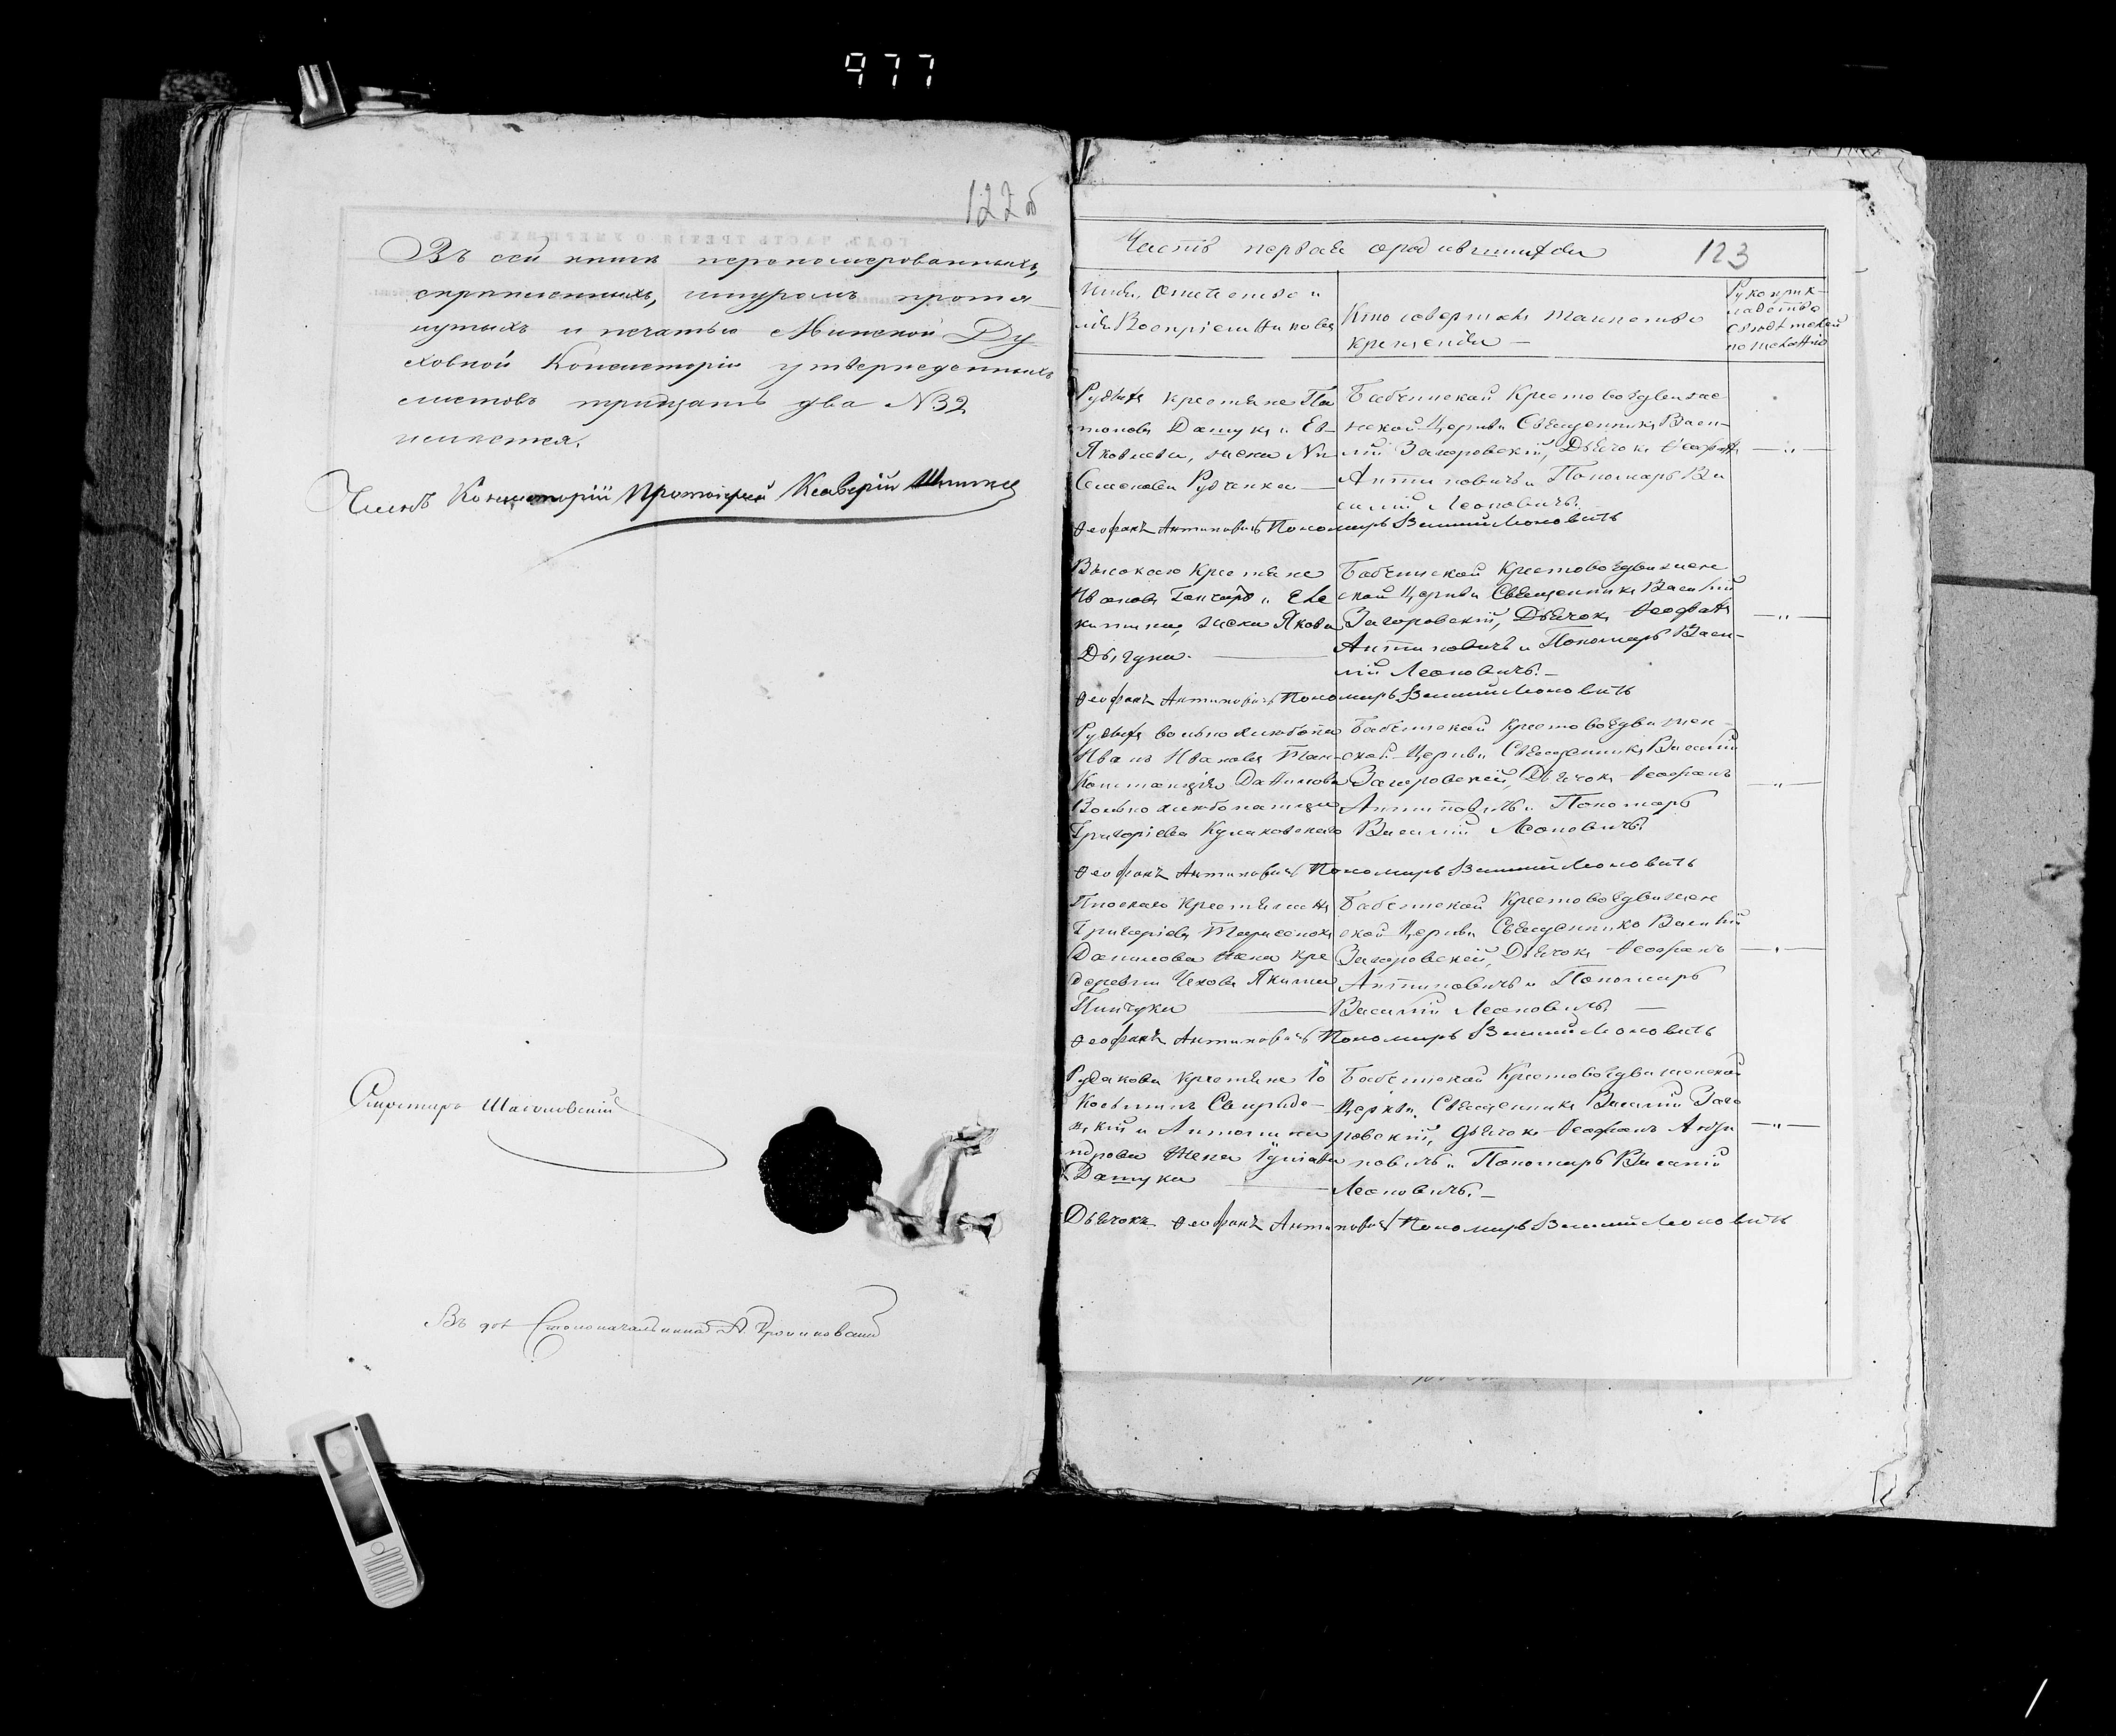 977
122б
Въ сей книгѣ перенумерованныхъ,
скрѣпленныхъ, шнуромъ протя-
нутыхъ и печатью Минской Ду
ховной Консисторіи утвержденныхъ
листовъ тридцать два №32
имѣется.
Членъ Консисторіи Протоіерей Ксаверій
Секретарь
Въ дол. Столоначальника А.
Часть первая о родившихся
123
Имя, Отчество и
лія Воспріемниковъ
Кто совершалъ таинство
крещенія —
Рукоприк-
ладство
свидѣтелей
по желанію
крестьяне Па
Дашукъ и Ев-
Яковлева, жена Ни
Семенова Рудченка —
Бабчинской Крестовоздвижен
ской Церкви Священникъ Васи-
лій Загоровскій, Дьячокъ Ѳеофанъ
Антиповичъ и Пономарь Ва
силій Леоновичъ.
Ѳеофанъ Антиповичъ Пономарь Василій Леоновичъ
Высокаго Крестьяне
Ивановъ Гончаръ и Еле
жена Якова
Бабчинской Крестовоздвижен
ской Церкви Священникъ Василій
Загоровскій, Дьячокъ Ѳеофанъ
Антиповичъ и Пономарь Васи-
лій Леоновичъ. —
Ѳеофанъ Антиповичъ Пономарь Василій Леоновичъ
Иванъ Ивановъ
Констанція
Григоріева Кулаковскаго
Бабчинской Крестовоздвижен-
ской Церкви Священникъ Василій
Загоровскій, Дьячокъ Ѳеофанъ
Антиповичъ и Пономарь
Василій Леоновичъ.
Ѳеофанъ Антиповичъ Пономарь Василій Леоновичъ
Плоскаго Крестьянинъ
Григоріевъ
Данилова жена кре
деревни Чехова Якима
Пинчука —
Бабчинской Крестовоздвижен
ской Церкви Священникъ Василій
Загоровскій, Дьячокъ Ѳеофанъ
Антиповичъ и Пономарь
Василій Леоновичъ. —
Ѳеофанъ Антиповичъ Пономарь Василій Леоновичъ
Рудакова крестьяне
и Антонина
жена
Дашука —
Бабчинской Крестовоздвиженской
Церкви Священникъ Василій Заго
ровскій, дьячокъ Ѳеофанъ Анти
повичъ и Пономарь Василій
Леоновичъ. —
Дьячокъ Ѳеофанъ Антиповичъ Пономарь Василій Леоновичъ